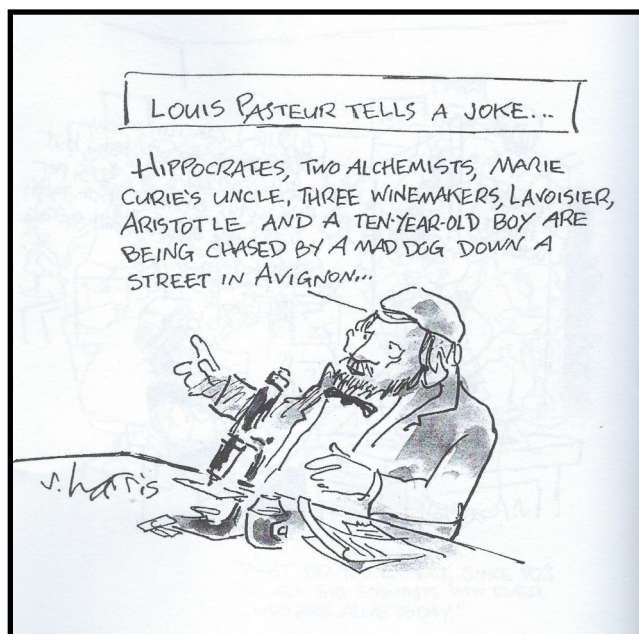 LOUIS PASTEUR TELLS A JOKE...
HIPPOCRATES, TWO ALCHEMISTS, MARIE
CURIE'S UNCLE, THREE WINEMAKERS, LAVOISIER,
ARISTOTLE AND A TEN-YEAR-OLD BOY ARE
BEING CHASED BY A MAD DOG DOWN A
STREET IN AVIGNON...
s.harris